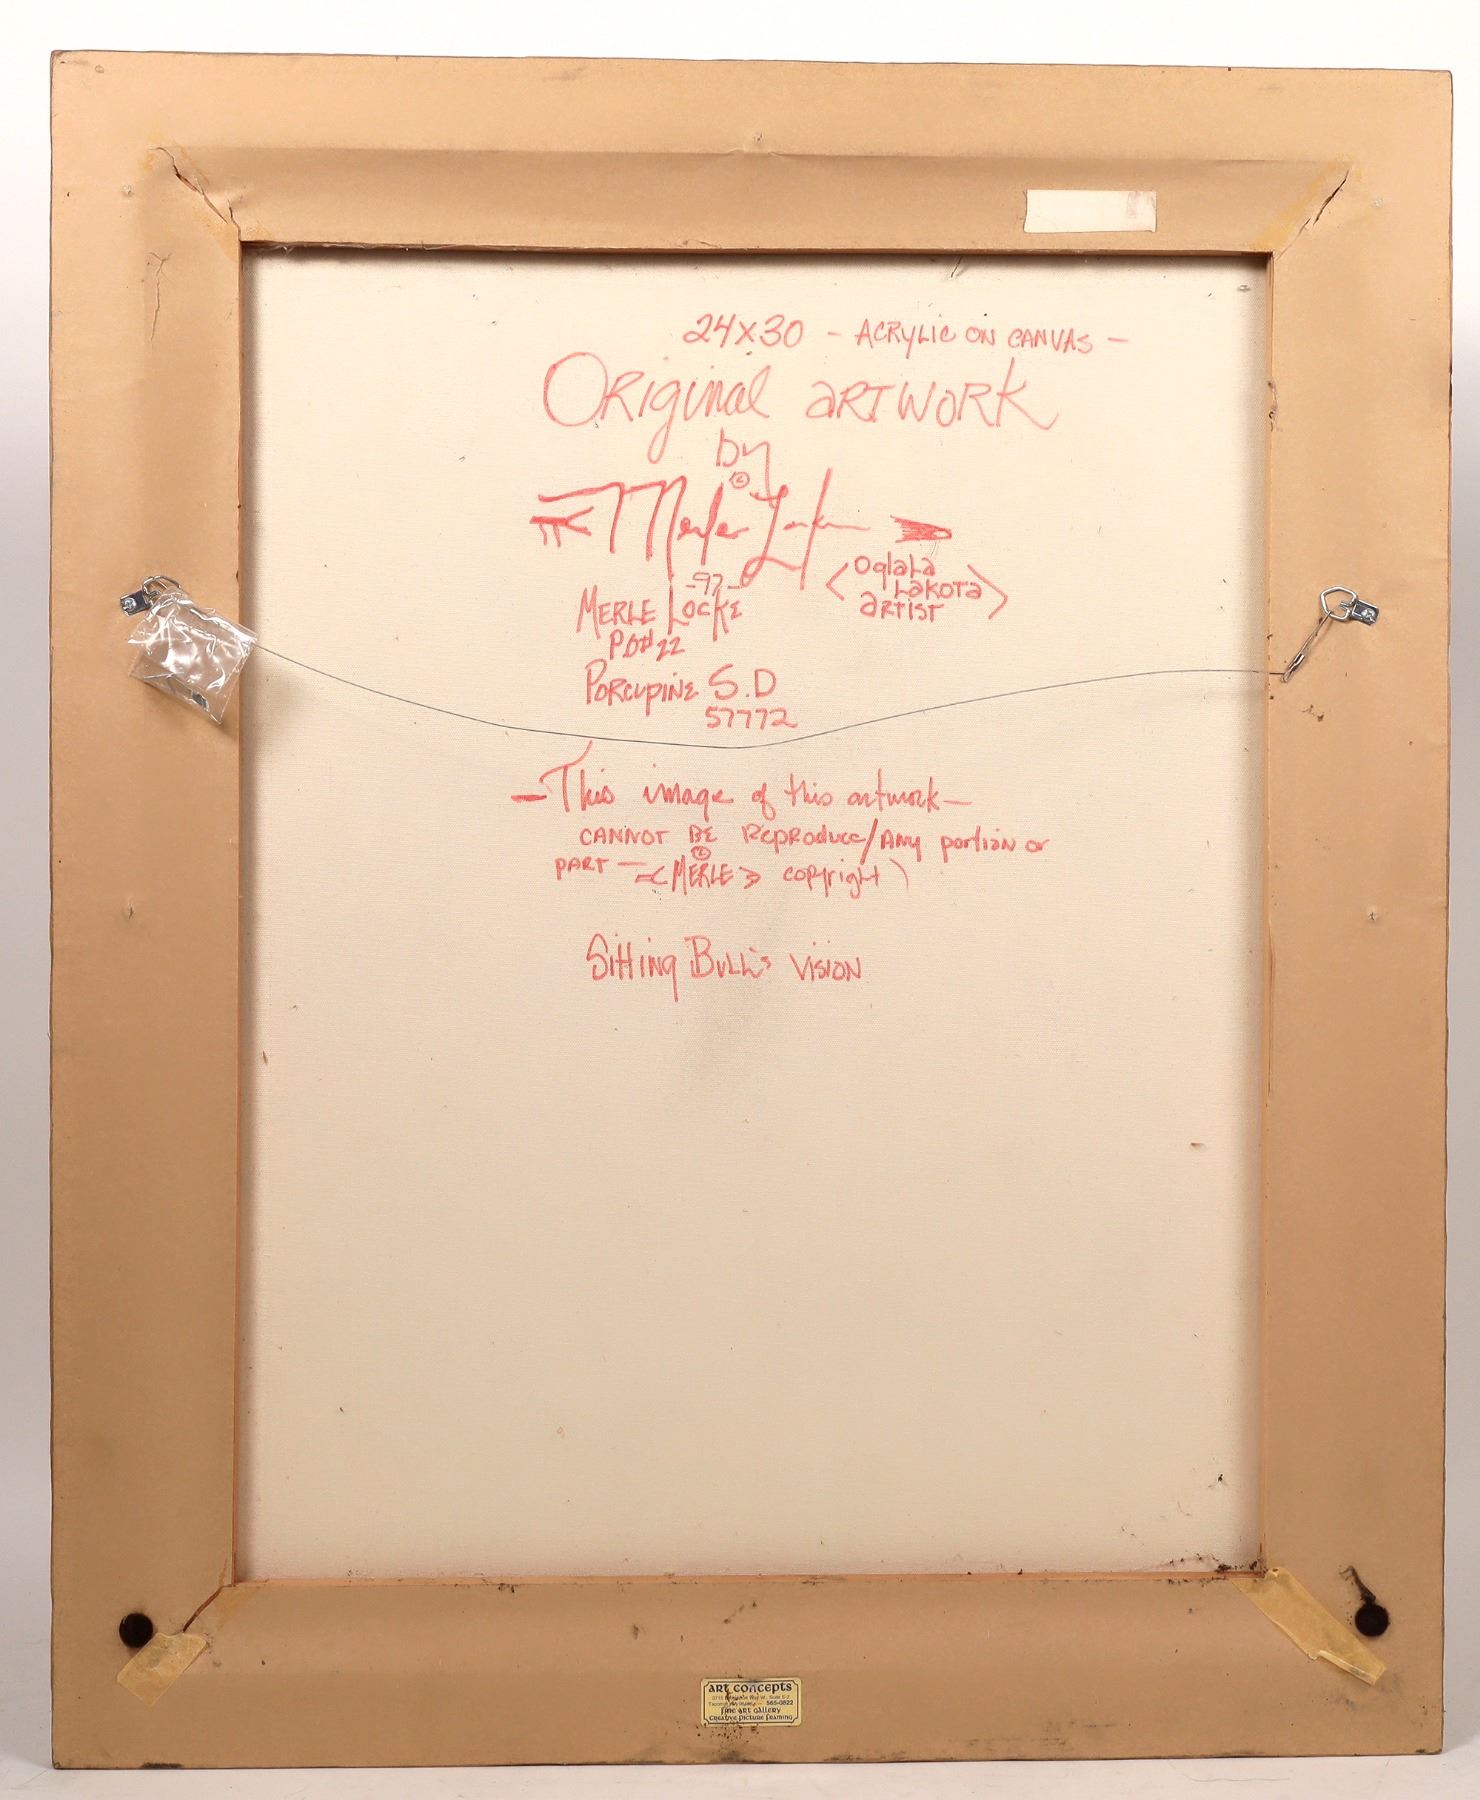 24x30 - ACRYLIC ON CANVAS -
ORiginal ARTWORK
by
©
Merle Locke
-97-
<Oglala
Lakota
artist>
MERLE LOCKE
PO#22
PORCUPINE S.D
57772
- This image of this artwork -
CANNOT BE REPRODUCE/ANY portion or
PART - <MERLE©> copyright)
Sitting Bull's VISION
ART CONCEPTS
Suite E-2
565-0822
FINE ART GALLERY
CREATIVE PICTURE FRAMING